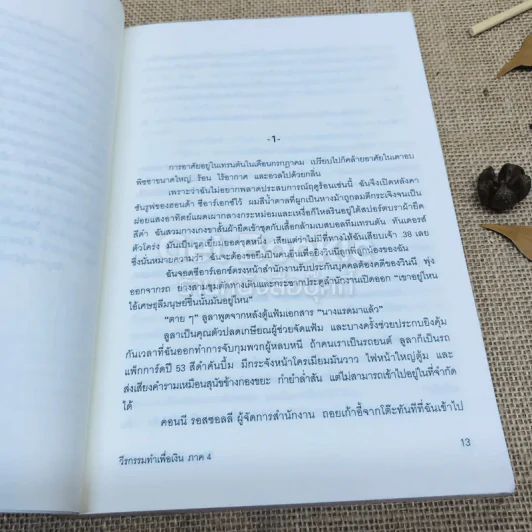 -1-
การอาศัยอยู่ในเทรนตันในเดือนกรกฎาคม เปรียบไปก็คล้ายอาศัยในเตาอบ
พิซซ่าขนาดใหญ่ ร้อน ไร้อากาศ และอวลไปด้วยกลิ่น
เพราะว่าฉันไม่อยากพลาดประสบการณ์ฤดูร้อนเช่นนี้ ฉันจึงเปิดหลังคา
ซันรูฟของฮอนด้า ซีอาร์เอกซ์ไว้ ผมสีน้ำตาลที่ผูกเป็นหางม้าถูกลมตีกระเจิงจนเป็น
ฝอยแสงอาทิตย์แผดเผากลางกระหม่อมและเหงื่อก็ไหลรินอยู่ใต้สปอร์ตบราผ้ายืด
สีดำ ฉันสวมกางเกงขาสั้นผ้ายืดเข้าชุดกับเสื้อกล้ามเบสบอลทีมเทรนตัน ทันเดอร์ส
ตัวโคร่ง มันเป็นชุดเยี่ยมยอดชุดหนึ่ง เสียแต่ว่าไม่มีที่ทางให้ฉันเสียบเจ้า .38 เลย
ซึ่งนั่นหมายความว่า ฉันจะต้องขอยืมปืนคนอื่นเพื่อยิงวินนี่ลูกพี่ลูกน้องของฉัน
ฉันจอดซีอาร์เอกซ์ตรงหน้าสำนักงานรับประกันบุคคลต้องคดีของวินนี่ พุ่ง
ออกจากรถ ย่างสามขุมตัดทางเดินและกระชากประตูสำนักงานเปิดออก "เขาอยู่ไหน
ไอ้เศษธุลีมนุษย์ชิ้นนั้นมันอยู่ไหน"
"ตาย ๆ" ลูลาพูดจากหลังตู้แฟ้มเอกสาร "นางแรดมาแล้ว"
ลูลาเป็นคุณตัวปลดเกษียณผู้ช่วยจัดแฟ้ม และบางครั้งช่วยประกบยิงคุ้ม
กันเวลาที่ฉันออกทำการจับกุมพวกผู้หลบหนี ถ้าคนเราเป็นรถยนต์ ลูลาก็เป็นรถ
แพ็กการ์ดปี 53 สีดำคันบึ้ม มีกระจังหน้าโครเมี่ยมมันวาว ไฟหน้าใหญ่ตุ้ม และ
ส่งเสียงคำรามเหมือนสุนัขข้างกองขยะ กำยำล่ำสัน แต่ไม่สามารถเข้าไปอยู่ในที่จำกัด
ได้
คอนนี่ รอสซอลลี่ ผู้จัดการสำนักงาน ถอยเก้าอี้จากโต๊ะทันทีที่ฉันเข้าไป
วีรกรรมทำเพื่อเงิน ภาค 4
13